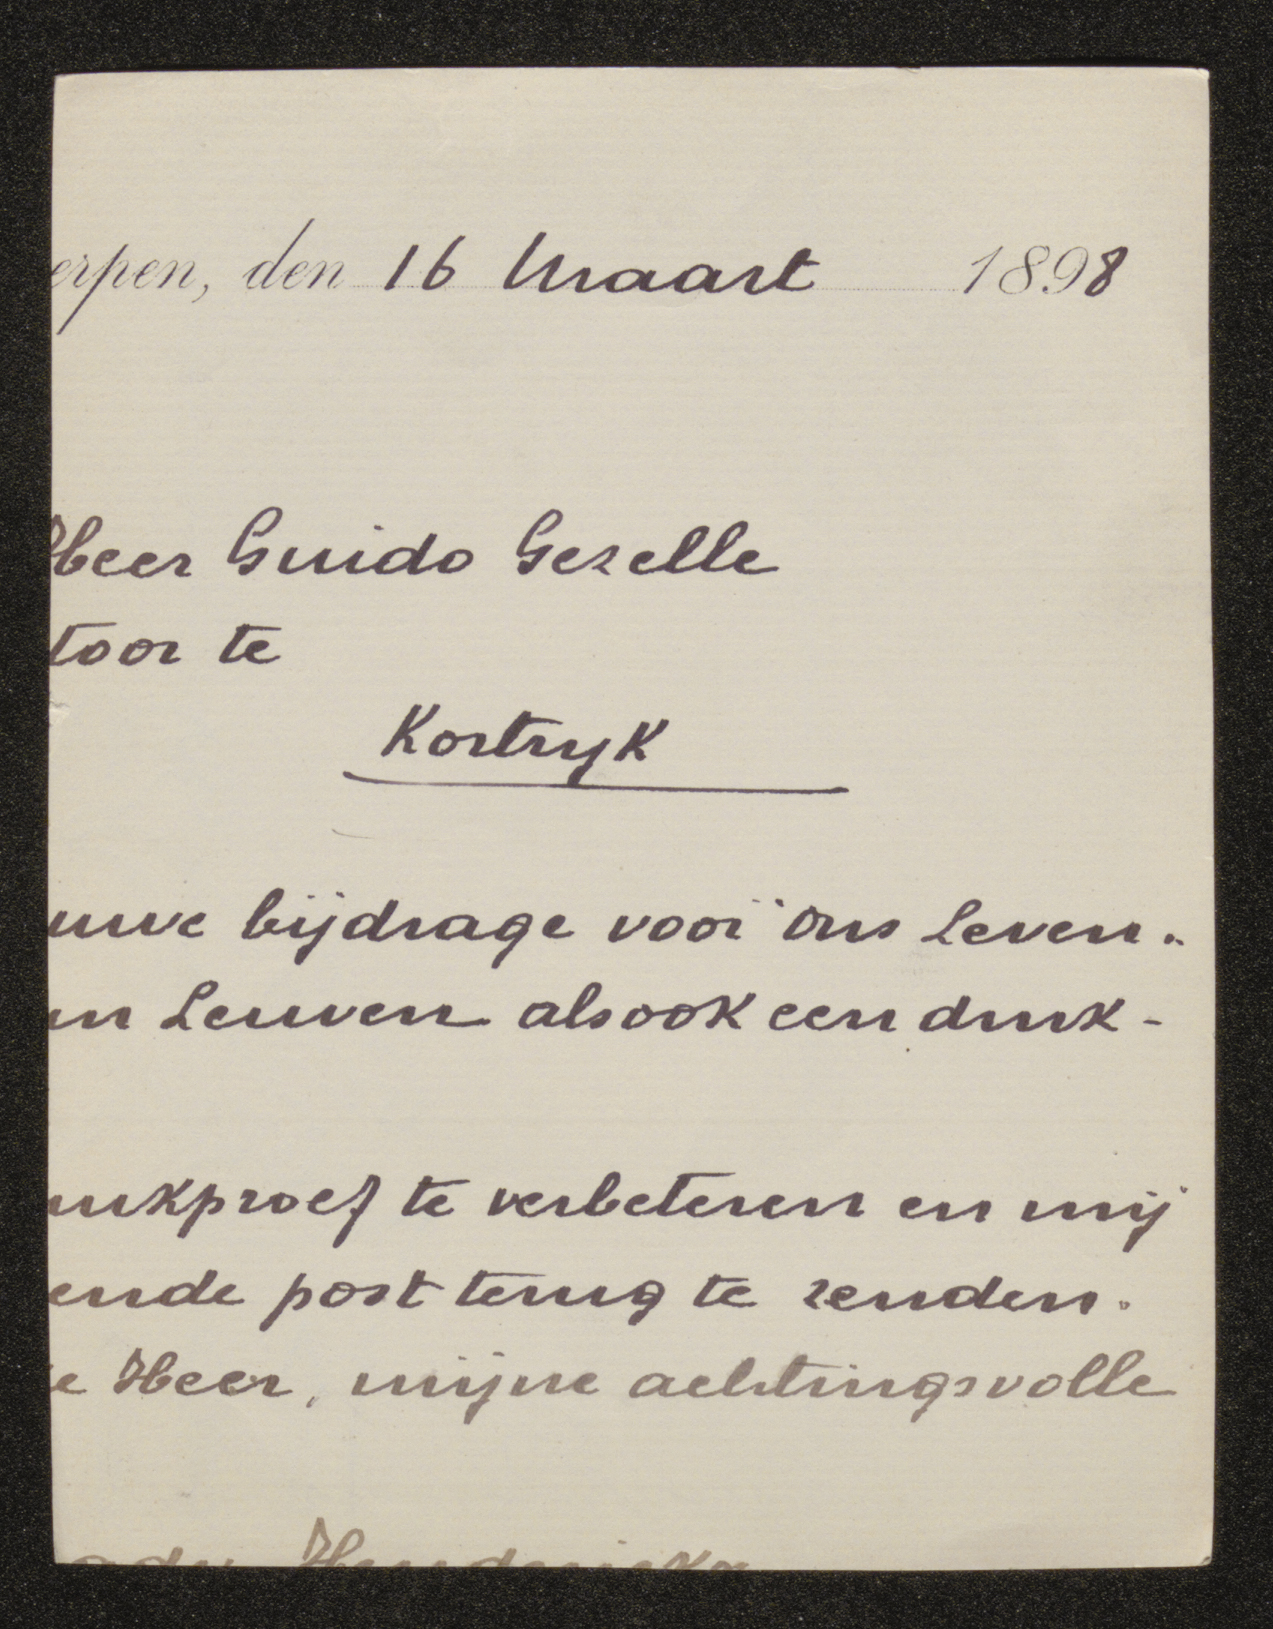 erpen, den 16 Maart 1898
Heer Guido Gezelle
toor te
Kortryk
uwe bijdrage voor "Ons Leven"
in Leuven alsook een druk-
ukproef te verbeteren en mij
ende post terug te zenden.
e Heer, mijne achtingsvolle
Hendrickx